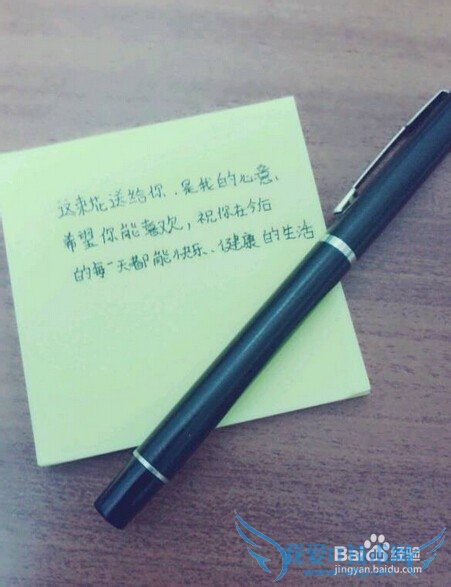 这束花送给你、是我的心意、
希望你能喜欢，祝你在今后
的每一天都能快乐、健康的生活
Baidu经验
jingyan.baidu.com